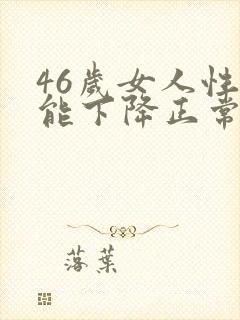 46歲女人性
能下降正常
落葉